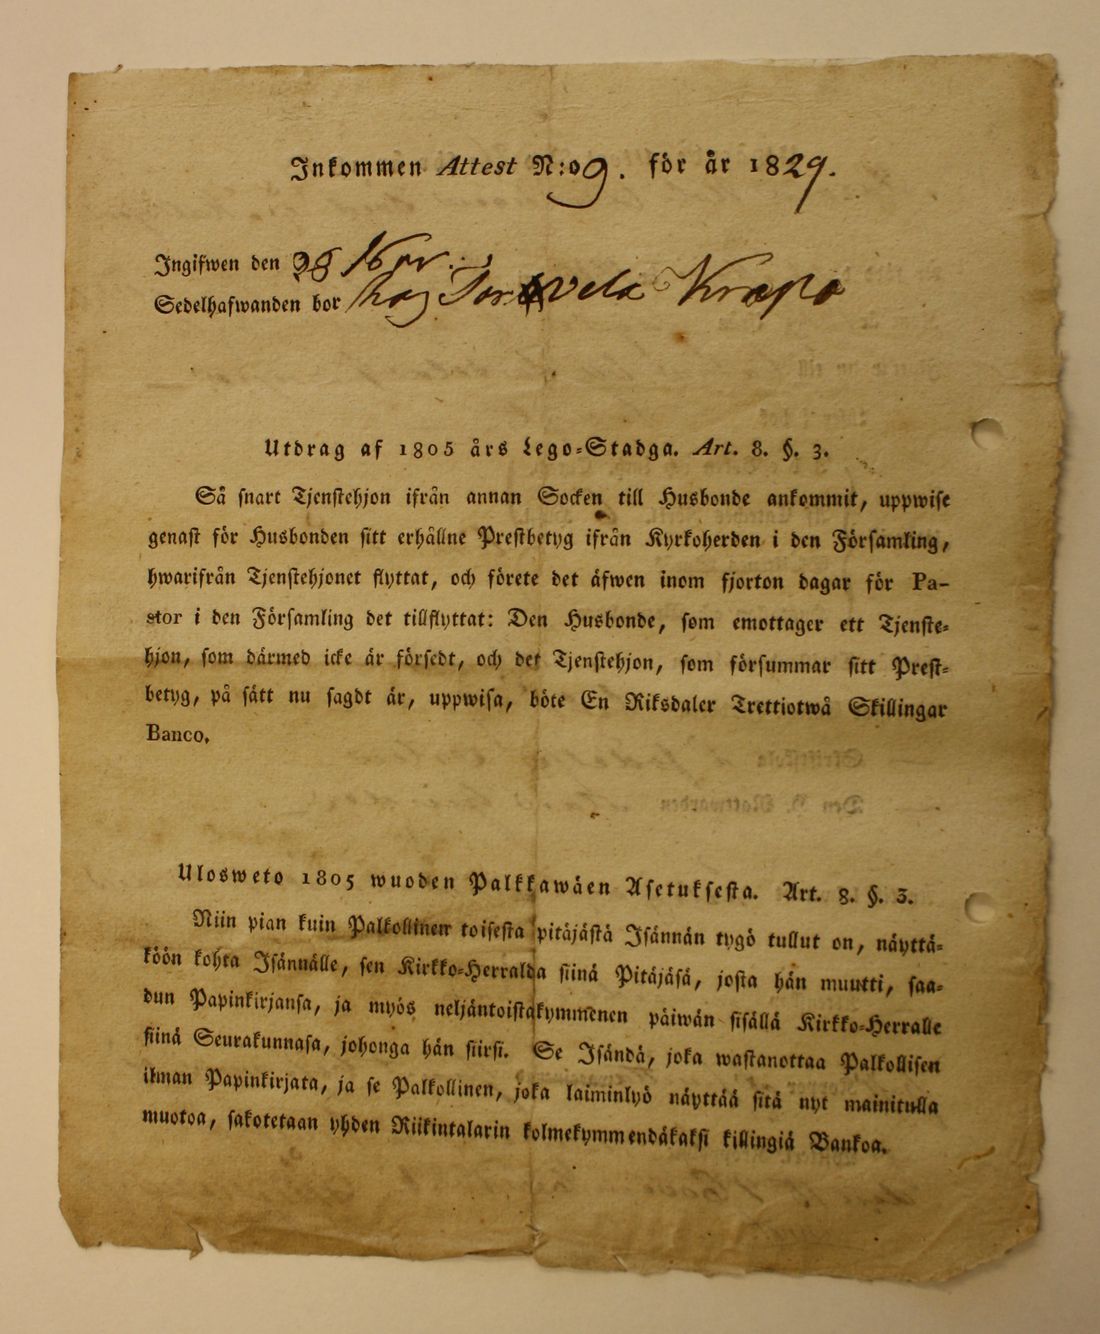 Inkommen Attest N:o 9. för år 1829.
Ingifwen den 28 Nov.
Sedelhafwanden bor hos Torvela Krapo
Utdrag af 1805 års Lego-Stadga. Art. 8. §. 3.
Så snart Tjenstehjon ifrån annan Socken till Husbonde ankommit, uppwise
genast för Husbonden sitt erhållne Prestbetyg ifrån Kyrkoherden i den Församling,
hwarifrån Tjenstehjonet flyttat, och förete det äfwen inom fjorton dagar för Pa-
stor i den Församling det tillflyttat: Den Husbonde, som emottager ett Tjenste-
hjon, som därmed icke är försedt, och det Tjenstehjon, som försummar sitt Prest-
betyg, på sätt nu sagdt är, uppwisa, böte En Riksdaler Trettiotwå Skillingar
Banco.
Ulosweto 1805 wuoden Palkkawäen Asetuksesta. Art. 8. §. 3.
Niin pian kuin Palkollinen toisesta pitäjästä Isännän tygö tullut on, näyttä-
köön kohta Isännälle, sen Kirkko-Herralda siinä Pitäjäsä, josta hän muutti, saa-
dun Papinkirjansa, ja myös neljäntoistakymmenen päiwän sisällä Kirkko-Herralle
siinä Seurakunnasa, johonga hän siirsi. Se Isändä, joka wastanottaa Palkollisen
ilman Papinkirjata, ja se Palkollinen, joka laiminlyö näyttää sitä nyt mainitulla
muotoa, sakotetaan yhden Riikintalarin kolmekymmendäkaksi killingiä Bankoa.